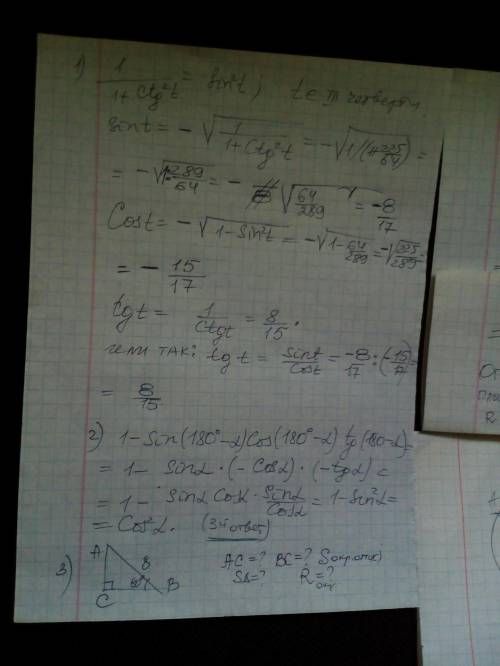 1) 1/(1+Ctg²t) = Sin²t; t ∈ III четверти
Sint = -√(1/(1+Ctg²t)) = -√(1/(1+225/64)) =
= -√(1:289/64) = - √(64/289) = -8/17
Cost = -√(1-Sin²t) = -√(1-64/289) = -√(225/289) =
= - 15/17
tgt = 1/Ctgt = 8/15.
или так: tgt = Sint/Cost = -8/17 : (-15/17) =
= 8/15
2) 1-Sin(180°-α)Cos(180°-α)tg(180-α) =
= 1- Sinα·(-Cosα)·(-tgα) =
= 1- Sinα Cosα · Sinα/Cosα = 1-Sin²α =
= Cos²α. (3й ответ)
3) A 8 C B AC=? BC=? Sокр.опис)
SΔ=? R=?
R